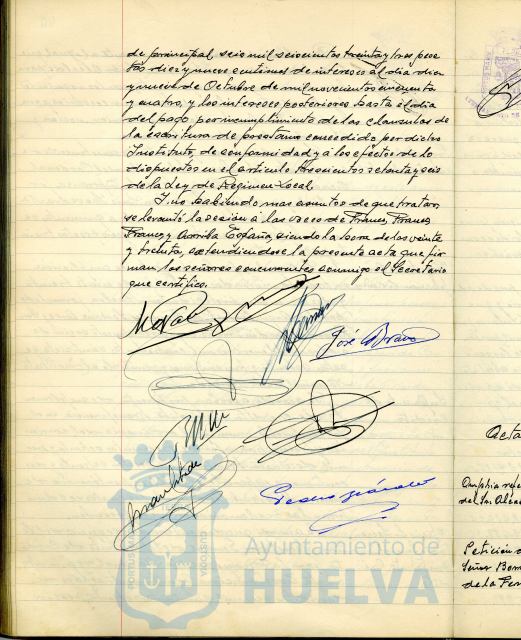 de principal, seis mil seiscientos treinta y tres pese
tas diez y nueve centimos de intereses al dia diez
y nueve de Octubre de mil novecientos cincuenta
y cuatro, y los intereses posteriores hasta el dia
del pago, por incumplimiento de las clausulas de
la escritura de prestamo concedido por dicho
Instituto, de conformidad y á los efectos de lo
dispuestos en el articulo trescientos setenta y seis
de la Ley de Regimen Local.
Y no habiendo mas asuntos de que tratar,
se levantó la sesión a las voces de Franco, Franco,
Franco y Arriba España, siendo la hora de las veinte
y treinta, extendiendose la presente acta que fir
man los señores concurrentes conmigo el Secretario
que certifico.
José Bravo
Ayuntamiento de
HUELVA
Acta
del Sr. Alca
Peticion
Señor
de la